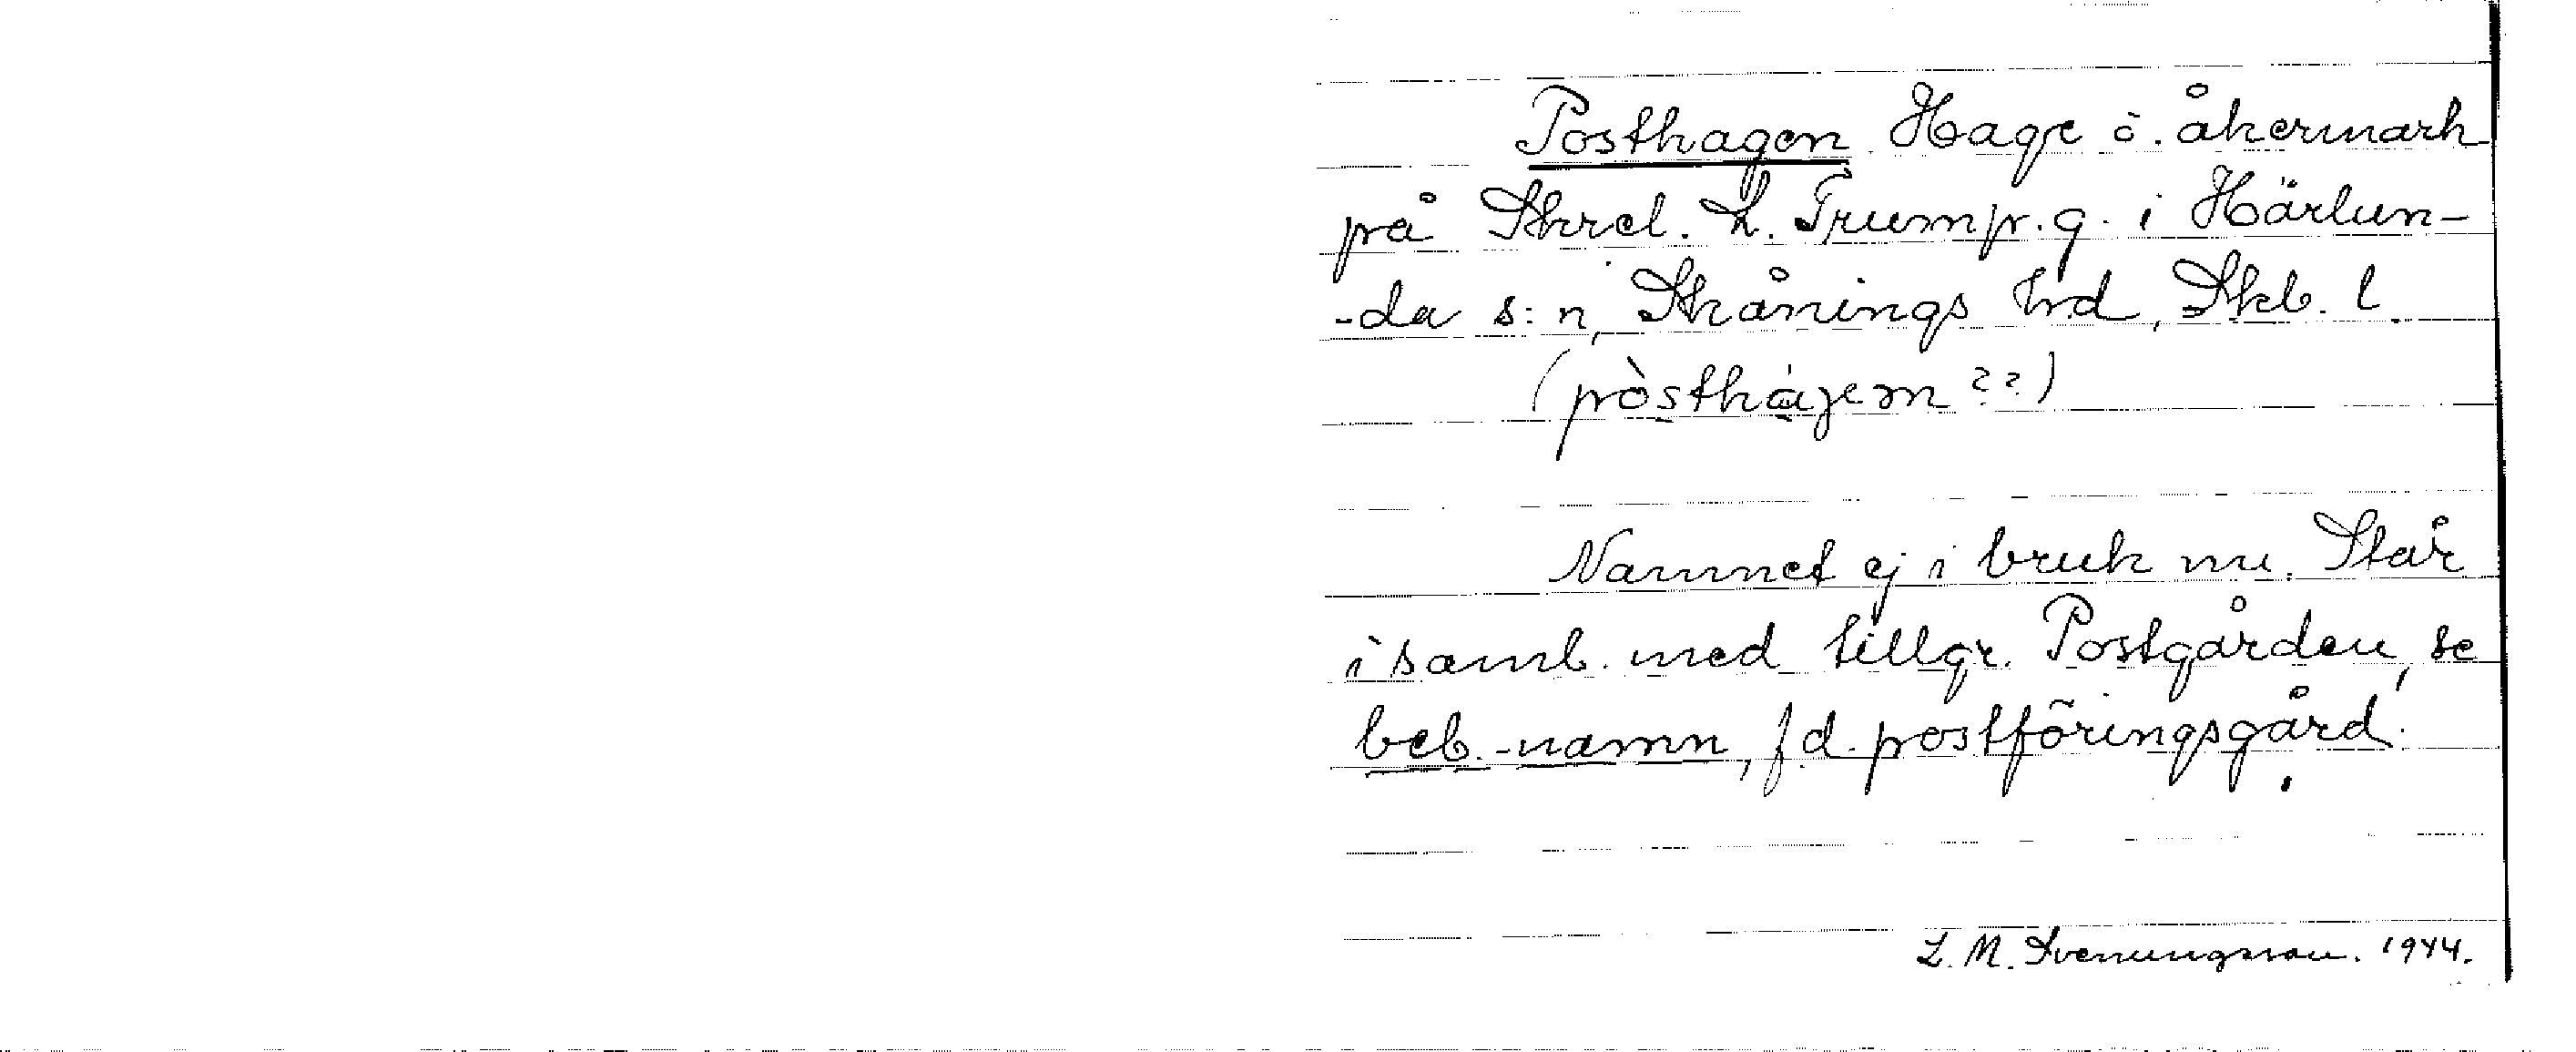 Posthagen Hage ö. åkermark
på Skrel. L. Trumpr.g. i Härlun-
-da s:n, Skånings hrd, Skb. l.
(pòsthàgem ??)
Namnet ej i bruk nu. Står
i samb. med tillgr. Postgården, se
beb.-namn, f.d. postföringsgård.
L. M. Svenungsson. 1944.